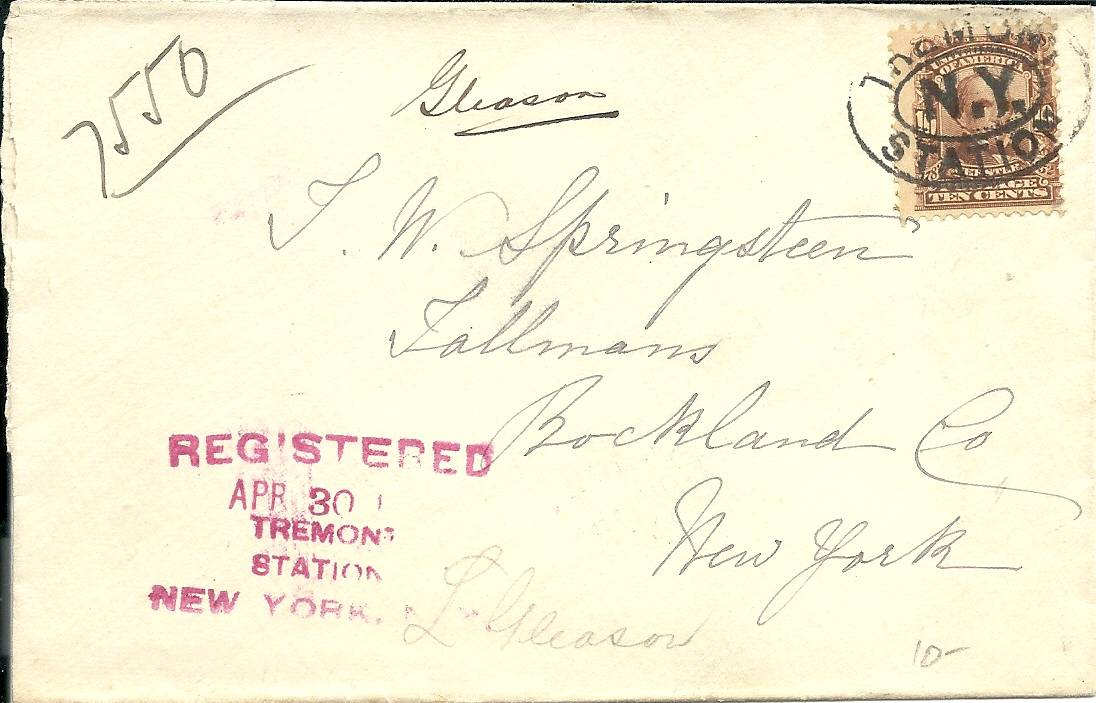 7550
Gleason
T. W. Springsteen
Tallmans
Rockland Co
New York
REGISTERED
APR 30
TREMONT
STATION
NEW YORK, N.Y.
L Gleason
10-
N.Y.
STATION
OF AMERICA
TEN CENTS